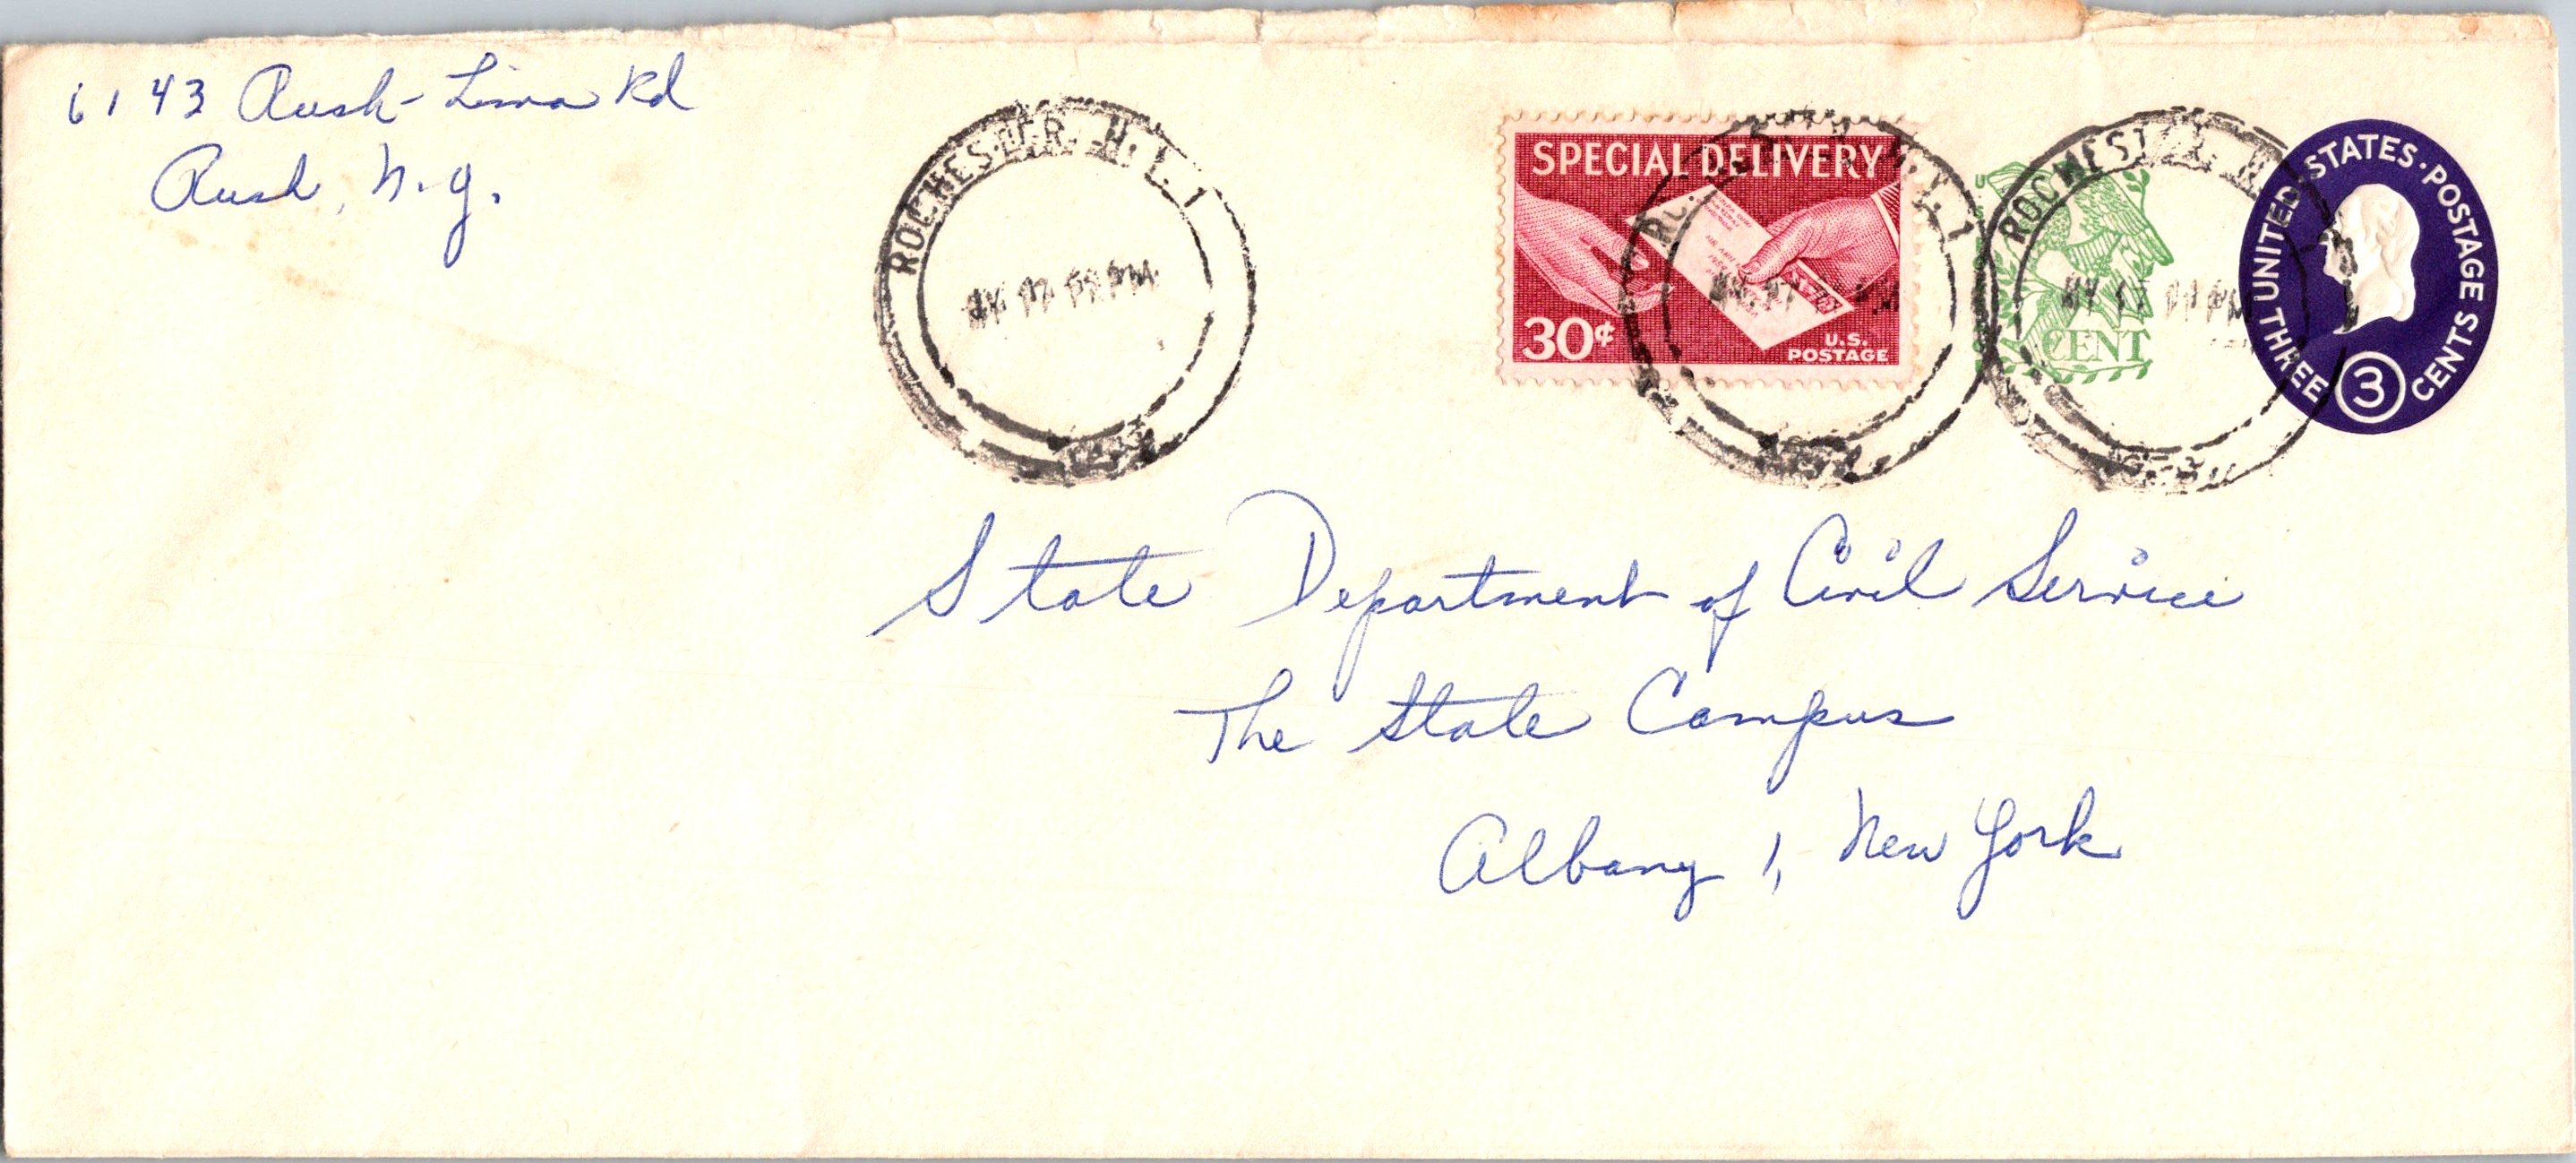 6143 Rush-Lima Rd
Rush, N.Y.
ROCHESTER, N.Y. 1
SPECIAL DELIVERY
30¢
U.S. POSTAGE
ROCHESTER, N.Y. 1
CENT
UNITED STATES · POSTAGE
THREE 3 CENTS
State Department of Civil Service
The State Campus
Albany 1, New York